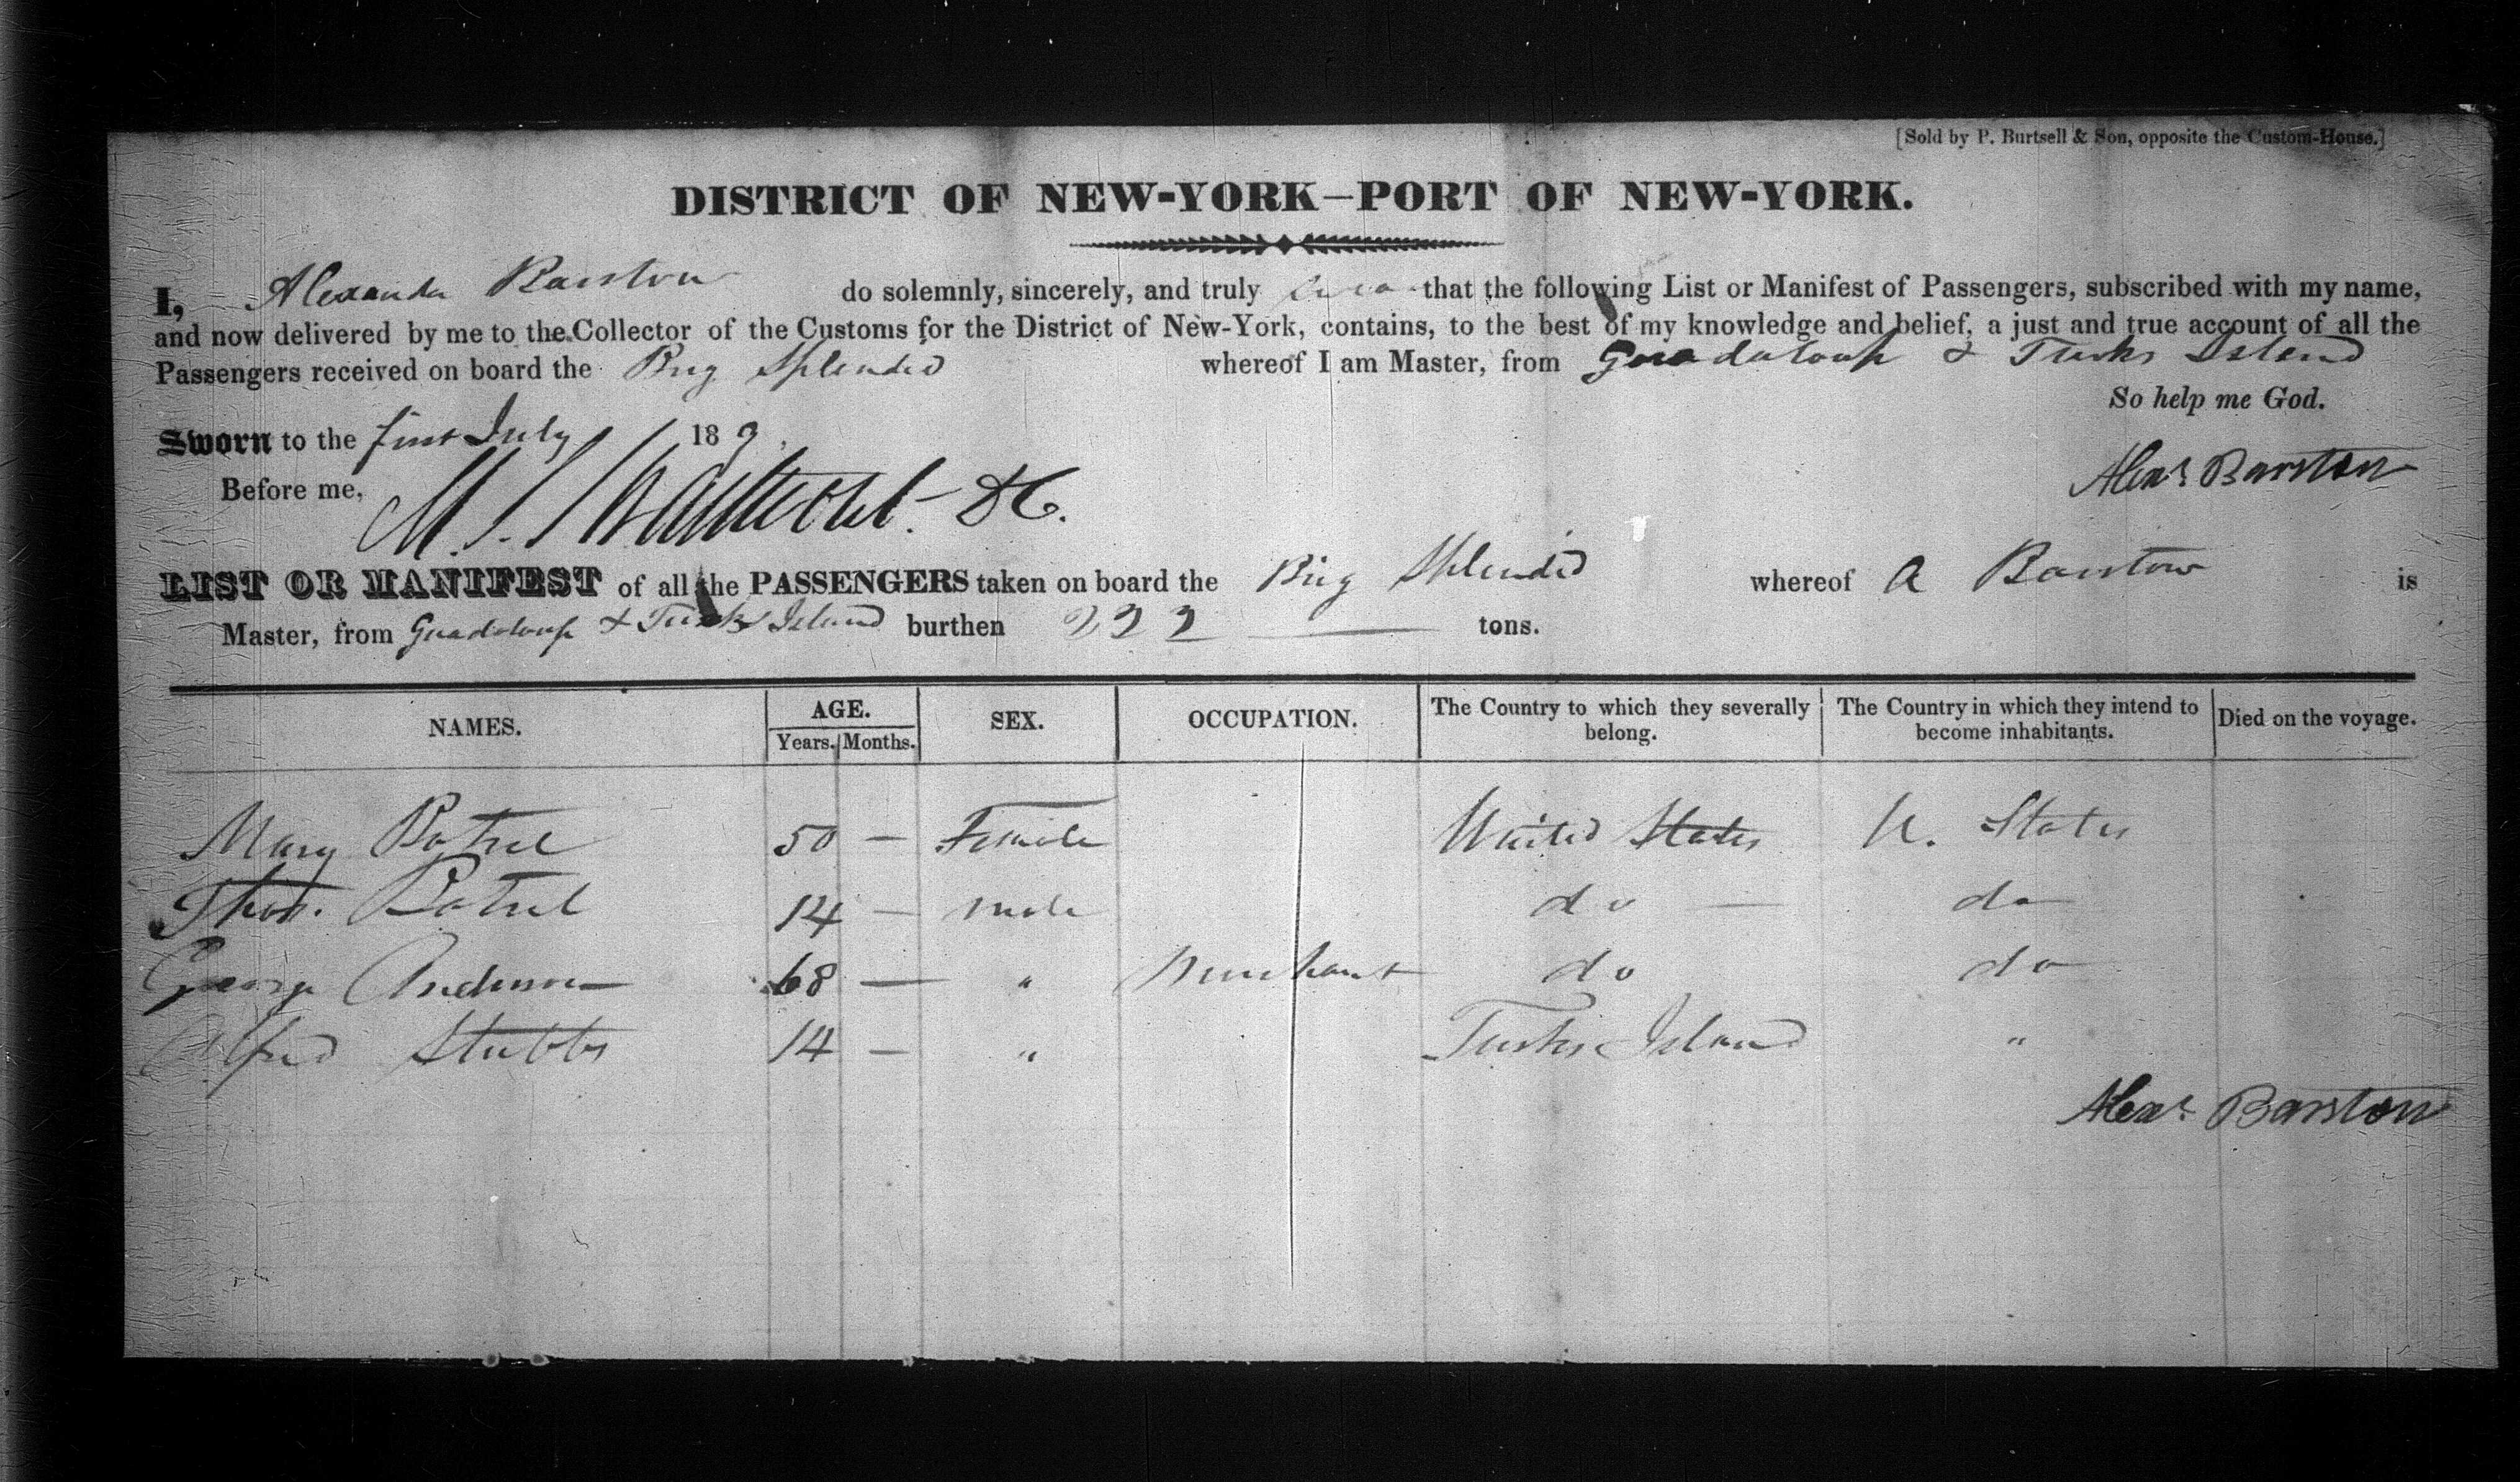 [Sold by P. Burtsell & Son, opposite the Custom-House.]
DISTRICT OF NEW-YORK—PORT OF NEW-YORK.
I, Alexander Barstow do solemnly, sincerely, and truly swear that the following List or Manifest of Passengers, subscribed with my name,
and now delivered by me to the Collector of the Customs for the District of New-York, contains, to the best of my knowledge and belief, a just and true account of all the
Passengers received on board the Brig Splendid whereof I am Master, from Guadaloup & Turks Island
So help me God.
Sworn to the first July 1839.
Before me,
Alexr Barstow
LIST OR MANIFEST of all the PASSENGERS taken on board the Brig Splendid whereof A Barstow is
Master, from Guadaloup & Turks Island burthen 222 tons.
NAMES. AGE. Years. Months. SEX. OCCUPATION. The Country to which they severally belong. The Country in which they intend to become inhabitants. Died on the voyage.
Mary Botrel 50 — Female United States U. States
Thos. Botrel 14 — male do — do
George Anderson 68 — " Merchant do do
Alfred Stubbs 14 — " Turks Island "
Alexr Barstow